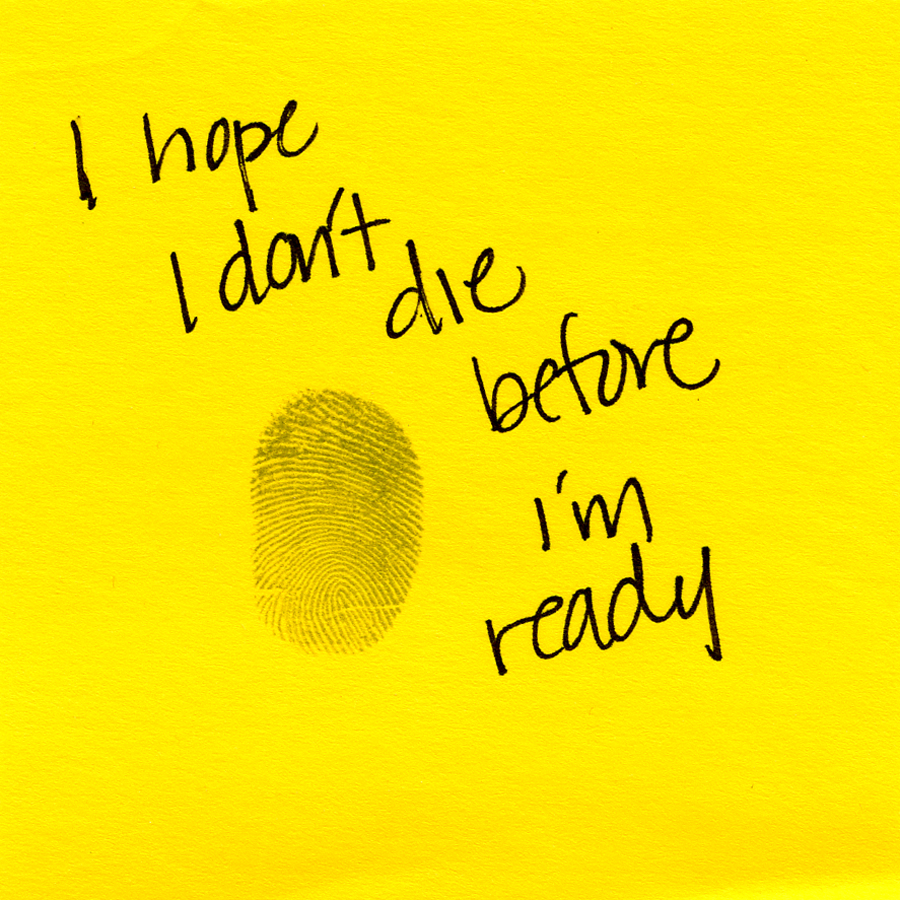 I hope
I don't die
before
i'm
ready